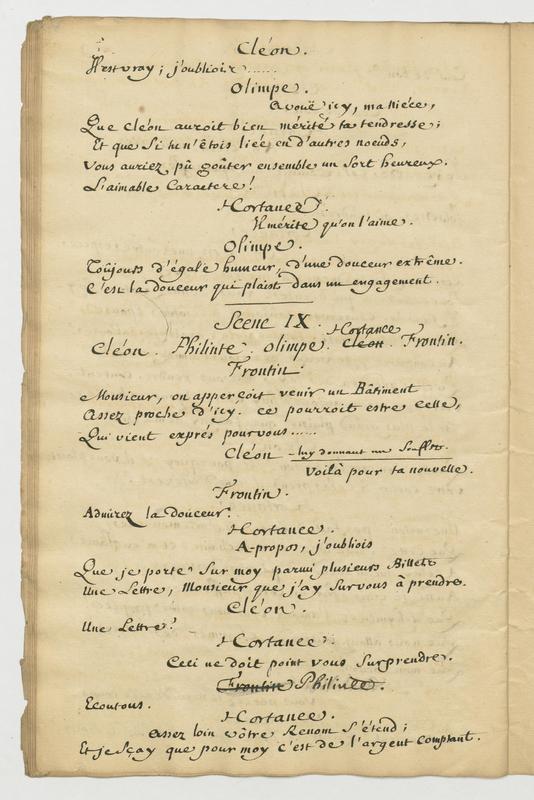 Cléon.
Il est vray; j'oubliois......
Olimpe.
Avoüe icy, ma Niéce,
Que Cléon auroit bien mérité ta tendresse;
Et que si tu n'étois liée en d'autres noeuds,
Vous auriez pû goûter ensemble un sort heureux.
L'aimable Caractere!
Hortance.
Il mérite qu'on l'aime.
Olimpe.
Toûjours d'égale humeur, d'une douceur extrême.
C'est la douceur qui plaist dans un engagement.
Scene IX.
Hortance
Cléon. Philinte. Olimpe. Cléon. Frontin.
Frontin.
Monsieur, on apperçoit venir un Bâtiment
Assez proche d'icy. ce pourroit estre celle,
Qui vient exprés pour vous......
Cléon luy donnant un Soufflet.
Voilà pour ta nouvelle.
Frontin.
Admirez la douceur.
Hortance.
A-propos, j'oubliois
Que je porte sur moy parmi plusieurs Billets
Une Lettre, Monsieur que j'ay sur vous à prendre.
Cléon.
Une Lettre?
Hortance.
Ceci ne doit point vous surprendre.
Frontin Philinte.
Ecoutons.
Hortance.
Assez loin vôtre Renom s'étend;
Et je sçay que pour moy c'est de l'argent comptant.